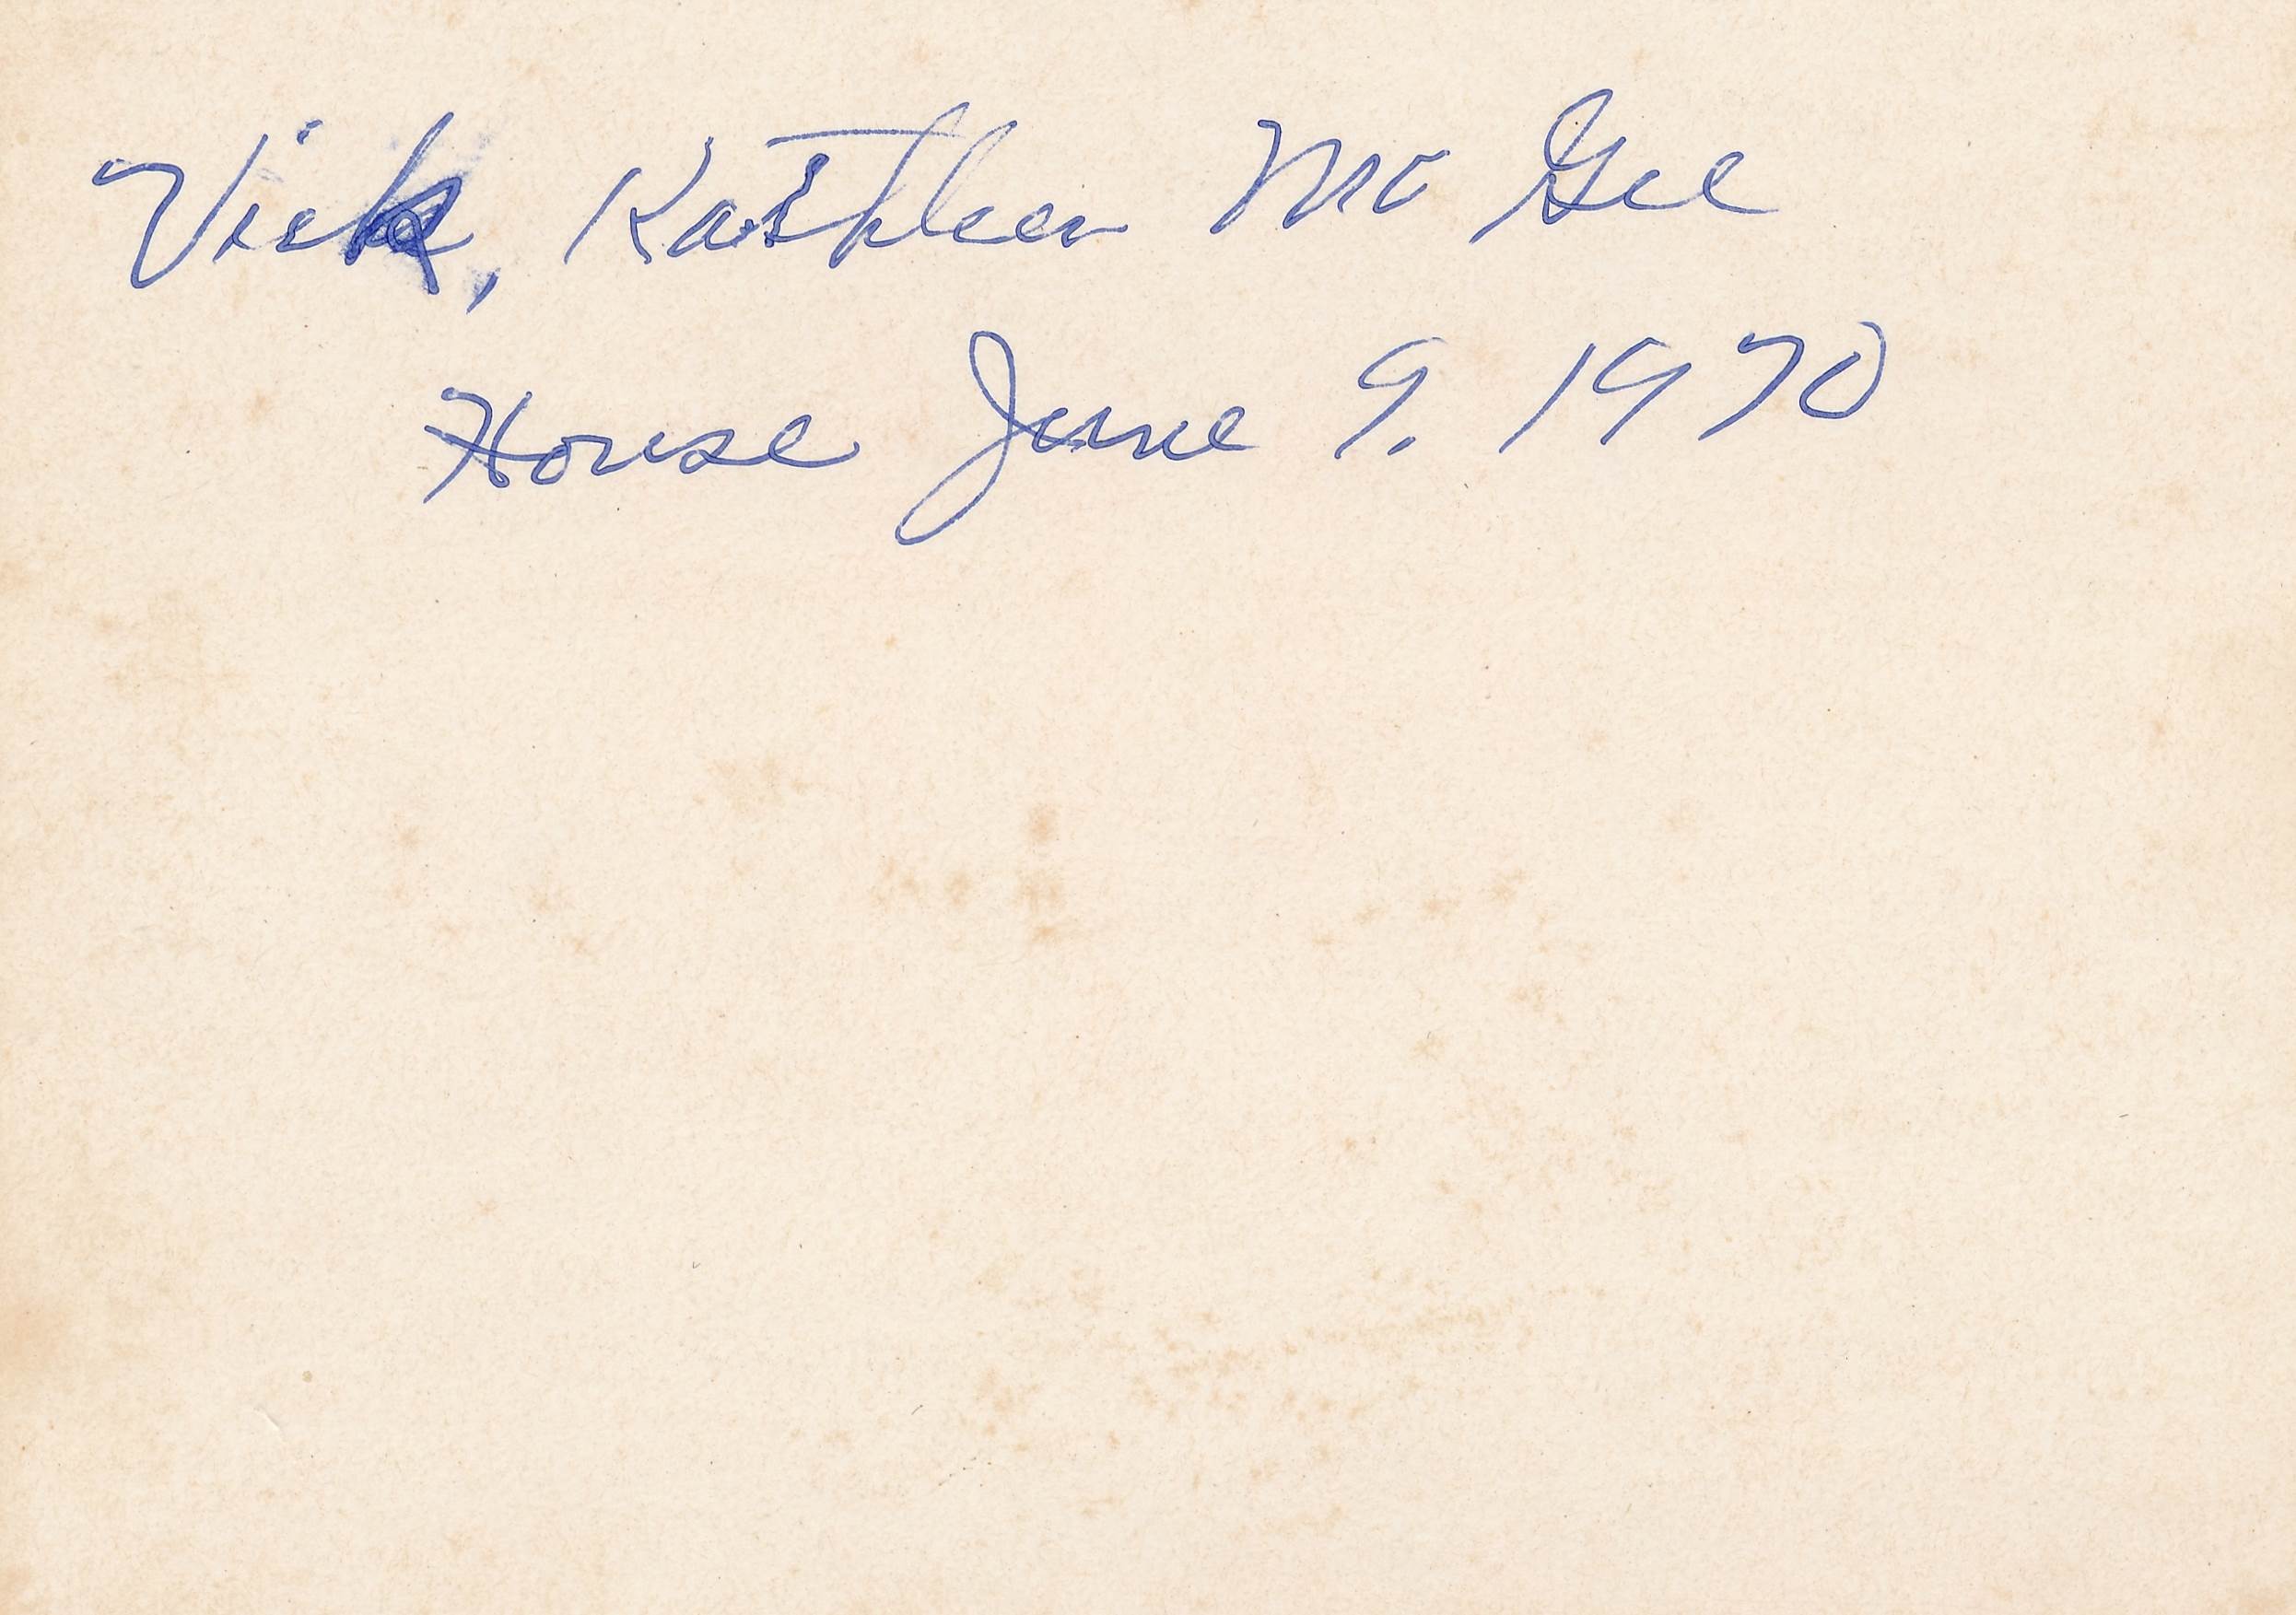 Vick, Kathleen Mc Gee
House June 9. 1970